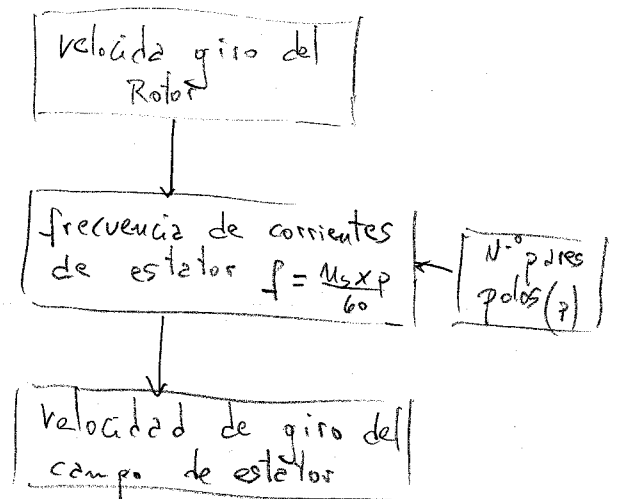 velocida giro del
Rotor
frecuencia de corrientes
de estator f = ns x p / 60
N.º pares
polos (p)
Velocidad de giro del
campo de estator